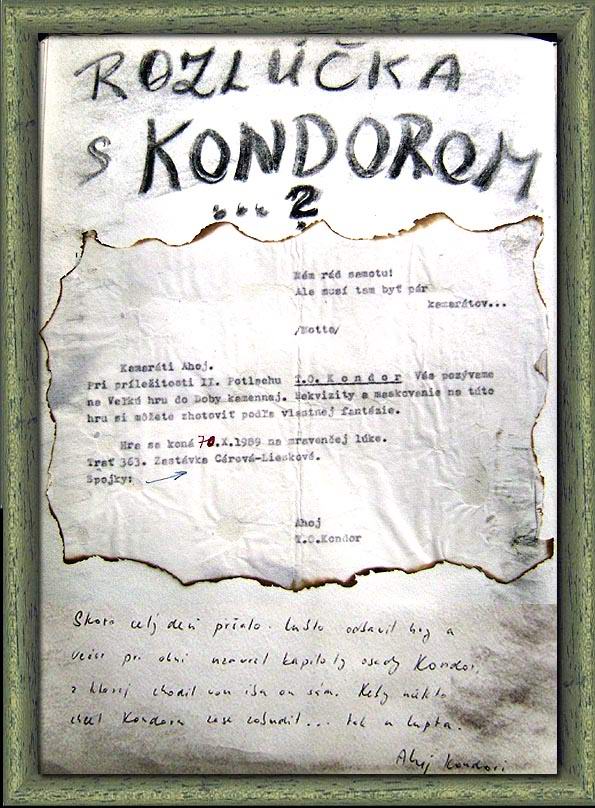 ROZLÚČKA
S KONDOROM
... ?
Mám rád samotu!
Ale musí tam byť pár
kamarátov...
/Motto/
Kamaráti Ahoj.
Pri príležitosti II. Potlachu T.O. Kondor Vás pozývame
na Veľkú hru do Doby kamennej. Rekvizity a maskovanie na túto
hru si môžete zhotoviť podľa vlastnej fantázie.
Hra sa koná 70.X.1989 na mravenčej lúke.
Trať 363. Zastávka Cárová-Lieskové.
Spojky:
Ahoj
T.O.Kondor
Skoro celý deň pršalo. odbavil hry a
večer pri ohni uzavrel kapitoly osady Kondor,
z ktorej chodil von iba on sám. Keby niekto
chcel Kondora zase ... tak
Ahoj Kondori